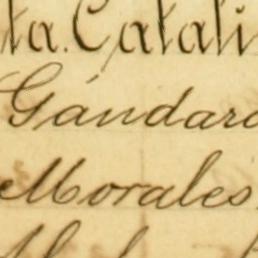 ta. Catali
Gándara
Morales